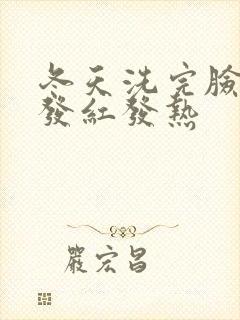 冬天洗完臉
發紅發熱
嚴宏昌